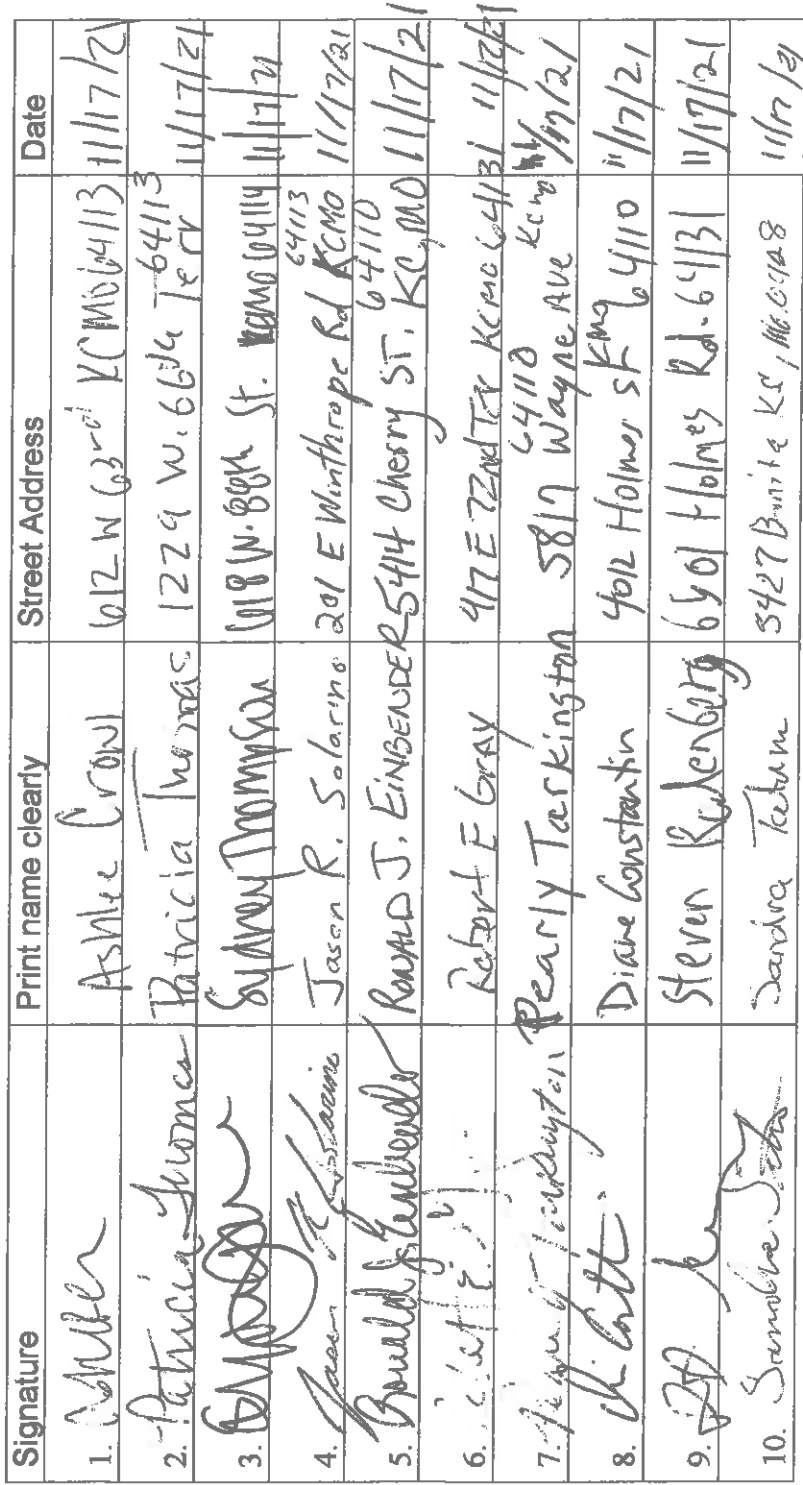 Signature Print name clearly Street Address Date
1. Ashlee Crowl 612 W 63rd KCMO 64113 11/17/21
2. Patricia Thomas Patricia Thomas 1229 W. 66th Terr 64113 11/17/21
3. Sydney Thompson W. St. KCMO 64114 11/17/21
4. Jason R Solarino Jason R. Solarino 201 E Winthrope Rd KCMO 64113 11/17/21
5. Ronald J Einbender RONALD J. EINBENDER 5414 Cherry ST. KC, MO 64110 11/17/21
6. Robert E Gray 417 E 72nd Ter KCMO 64131 11/17/21
7. Pearly Tarkington Pearly Tarkington 5817 Wayne Ave KCMO 64110 11/17/21
8. Diane Constantin 4012 Holmes St KMO 64110 11/17/21
9. Steven 6601 Holmes Rd. 64131 11/17/21
10. Sandra Tatum 3427 KC, MO. 11/17/21